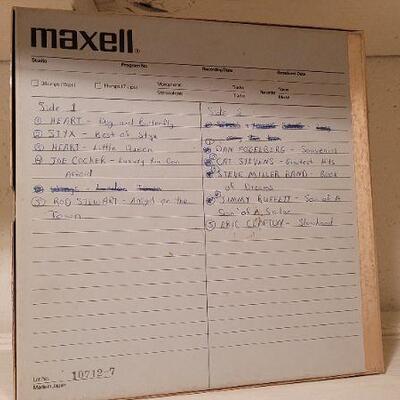 maxell
Studio Program No. Recording Date Broadcast Date
Side 1
① HEART - Dog and Butterfly
② STYX - Best of Styx
③ HEART - Little Queen
④ JOE COCKER - Luxury You Can
Afford
⑤ ROD STEWART - A Night on the
Town
Side 2
DAN FOGELBERG - Souvenirs
CAT STEVENS - Greatest Hits
STEVE MILLER BAND - Book
of Dreams
JIMMY BUFFETT - Son of A
Son of A Sailor
⑤ ERIC CLAPTON - Slowhand
Lot No. 10712-7
Made in Japan